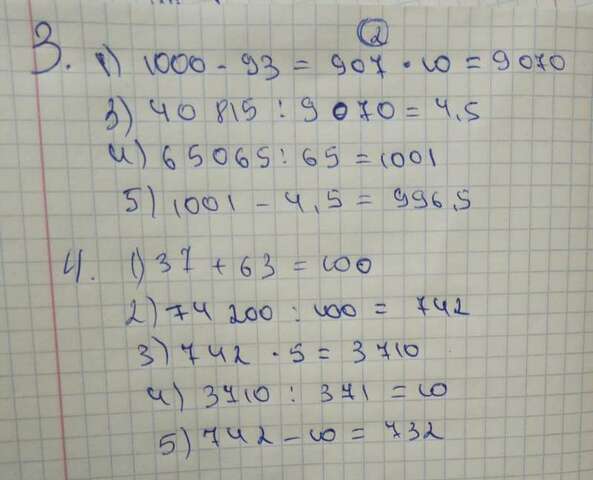 ②
3. 1) 1000 - 93 = 907 · 10 = 9070
3) 40 815 : 9070 = 4,5
4) 65065 : 65 = 1001
5) 1001 - 4,5 = 996,5
4. 1) 37 + 63 = 100
2) 74 200 : 100 = 742
3) 742 · 5 = 3710
4) 3710 : 371 = 10
5) 742 - 10 = 732